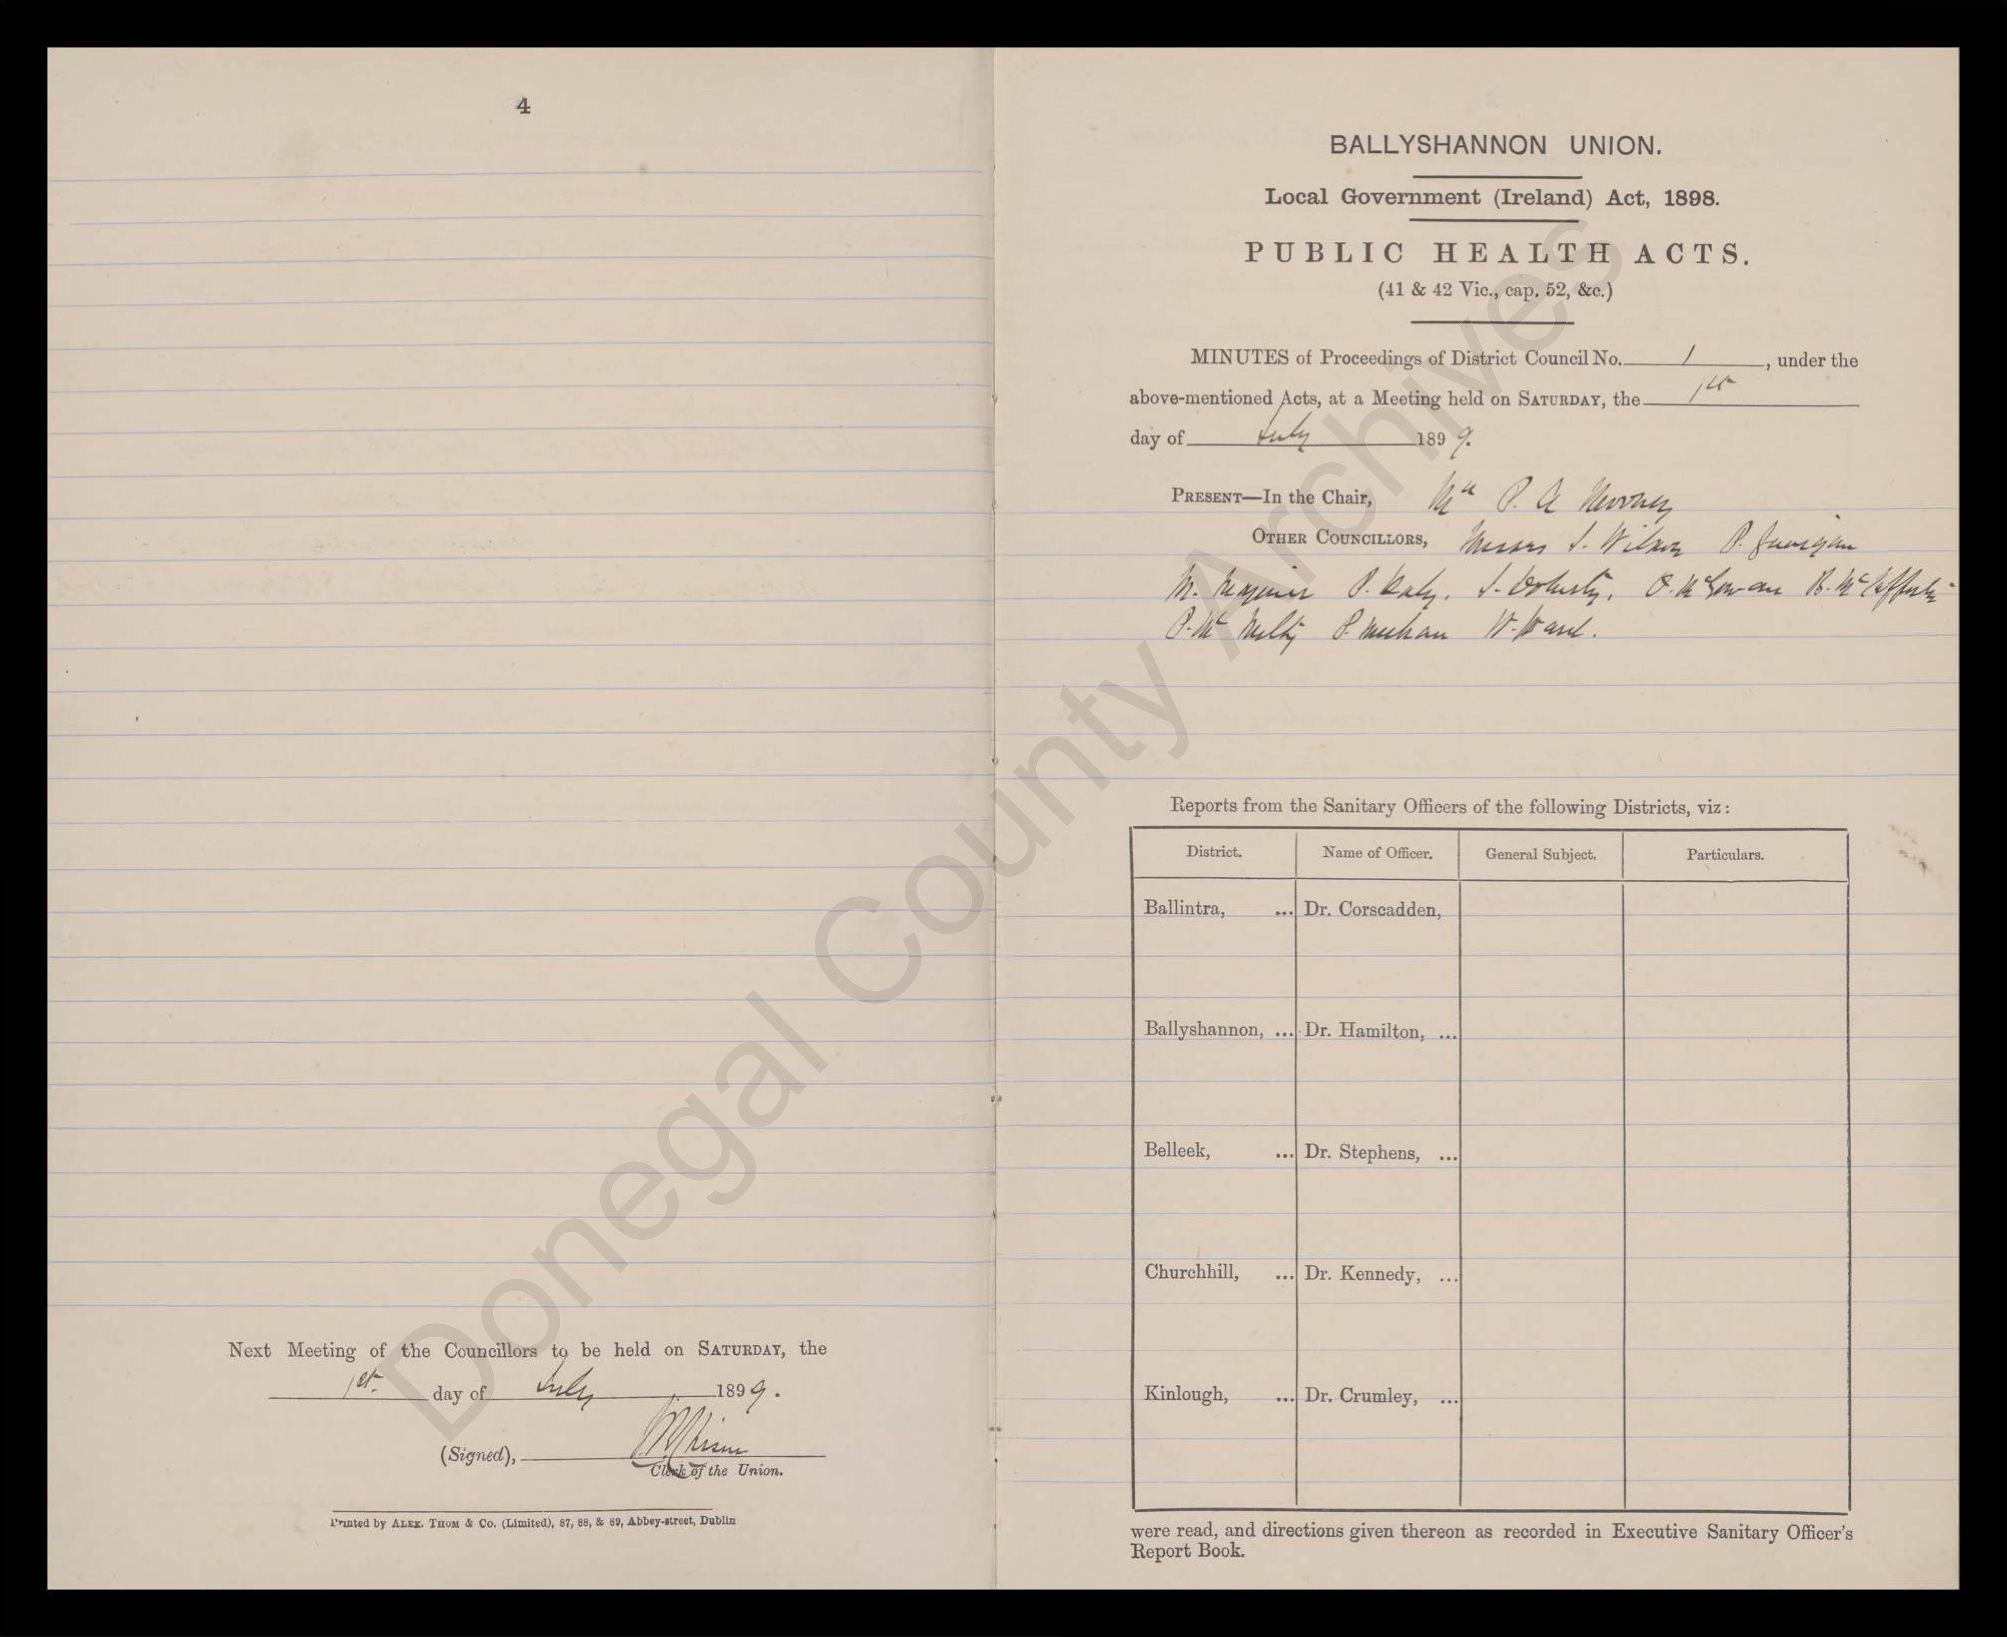 4
Next Meeting of the Councillors to be held on SATURDAY, the
1st day of July 1899.
(Signed),
Clerk of the Union.
Printed by ALEX. THOM & Co. (Limited), 87, 88, & 89, Abbey-street, Dublin
BALLYSHANNON UNION.
Local Government (Ireland) Act, 1898.
PUBLIC HEALTH ACTS.
(41 & 42 Vic., cap. 52, &c.)
MINUTES of Proceedings of District Council No. 1, under the
above-mentioned Acts, at a Meeting held on SATURDAY, the 1st
day of July 1899.
PRESENT—In the Chair, Mr P. A
OTHER COUNCILLORS, Messrs J. Wilson P.
M. Maguire P. Daly. J. Doherty. O. McGowan B. McCafferty
P. Mc Nelly P. Meehan W. Ward.
Reports from the Sanitary Officers of the following Districts, viz:
District. Name of Officer. General Subject. Particulars.
Ballintra, ... Dr. Corscadden,
Ballyshannon, ... Dr. Hamilton, ...
Belleek, ... Dr. Stephens, ...
Churchhill, ... Dr. Kennedy, ...
Kinlough, ... Dr. Crumley, ...
were read, and directions given thereon as recorded in Executive Sanitary Officer's
Report Book.
Donegal County Archives